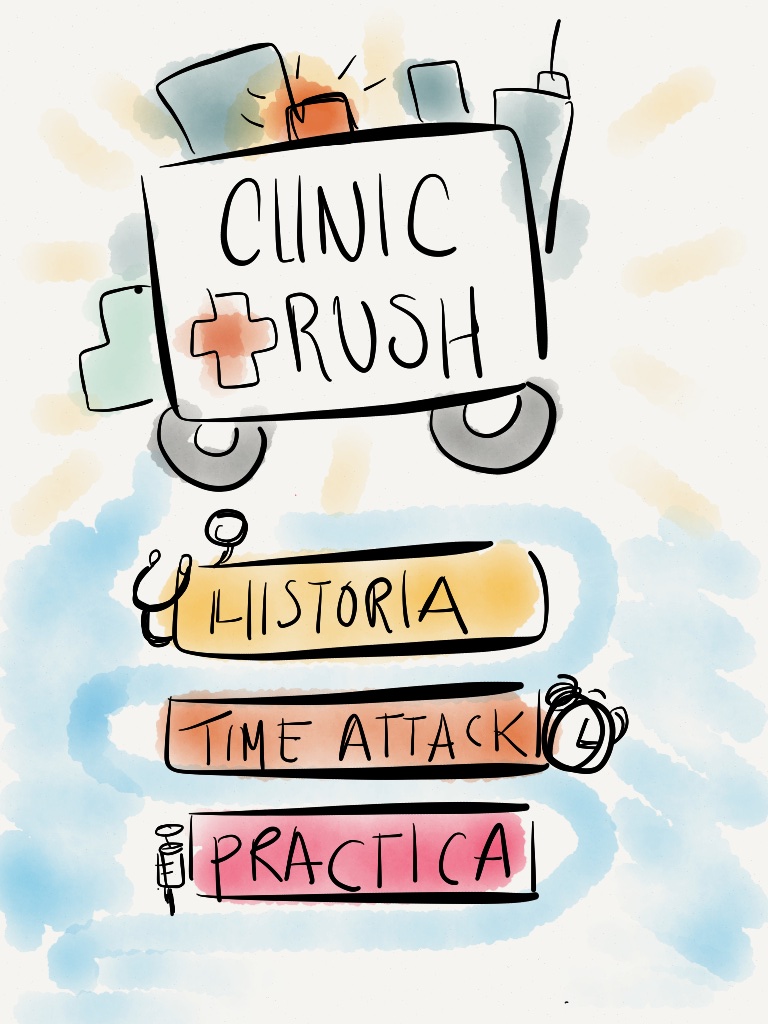 CLINIC
RUSH
HISTORIA
TIME ATTACK
PRACTICA